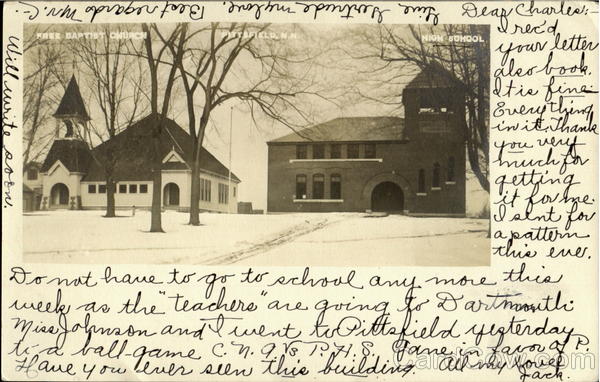 Give Gertrude my love. Best regards Mr. C.
FREE BAPTIST CHURCH
PITTSFIELD, N.H.
HIGH SCHOOL
Dear Charles:-
I rec'd
your letter
also book.
It is fine.
Everything
in it. Thank
you very
much for
getting
it for me.
I sent for
a pattern
this eve.
Do not have to go to school any more this
week as the "teachers" are going to Dartmouth.
Miss Johnson and I went to Pittsfield yesterday
to a ball-game C.N.A. Vs P.H.S. Game in favor of P.
Have you ever seen this building. All my love
Jack.
Will write soon.
CardCow.com